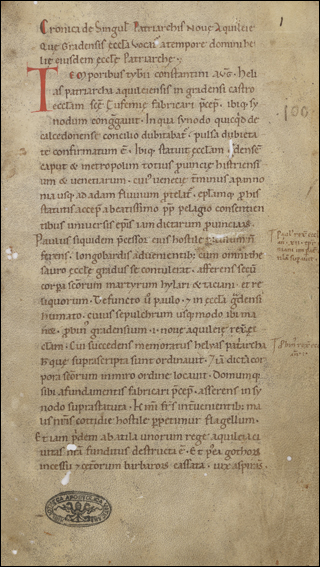 Cronica de singul' Patriarchis Noue Aquileie
Que Gradensis eccl'a uocat' a tempore domini he
lie eiusdem eccl'e Patriarche.
Temporibus tyb'ii constantini aug'. Heli
as patriarcha aquileiensis in gradensi castro
eccl'am sc'e Eufemie fabricari p'cep'. ibiq; sy
nodum congregauit. In qua synodo quicq'd de
calcedonense concilio dubitabat'. pulsa dubieta
te confirmatum e'. ibiq; statuit eccl'am g'dense'
caput & metropolim totius prouincie histriensi
um & uenetiarum. cui' uenecie t'minus a panno
nia usq; ad adam fluuium p'telat'. ep'lamq; p'his
statutis accep' a beatissimo pp' pelagio consentien
tibus uniuersis ep'is iam dictarum prouinciar'.
Paulus siquidem p'cessor eius hostile
ferens. longobardis aduenientibus cum omni the
sauro eccl'e gradus se contulerat. afferens secu'
corpora scorum martyrum hylari & taciani. et re
liquorum. Defuncto u' paulo. & in eccl'a g'densi
humato. cuius sepulchrum usq; modo ibi ma
net. p'bin' gradensium i. noue aquileie rex'
clam. Cui succedens memoratus helyas patriarcha
h' que suprascripta sunt ordinauit. & ia' dicta cor
pora scorum in miro ordine locauit. Domumq;
sibi a fundamentis fabricari p'cep'. asserens in sy
nodo suprastatuta. Kmi fr's in'uenientib; ma
lis n'ris cottidie hostile p'petimur flagellum.
Et iam p'dem ab atila unorum rege aquileia ci
uitas n'ra funditus destructa e'. Et p'ea gothor'
incessu & ceterorum barbaror' cassata. uix aspirat.
1
100
BIBLIOTECA APOSTOLICA VATICANA